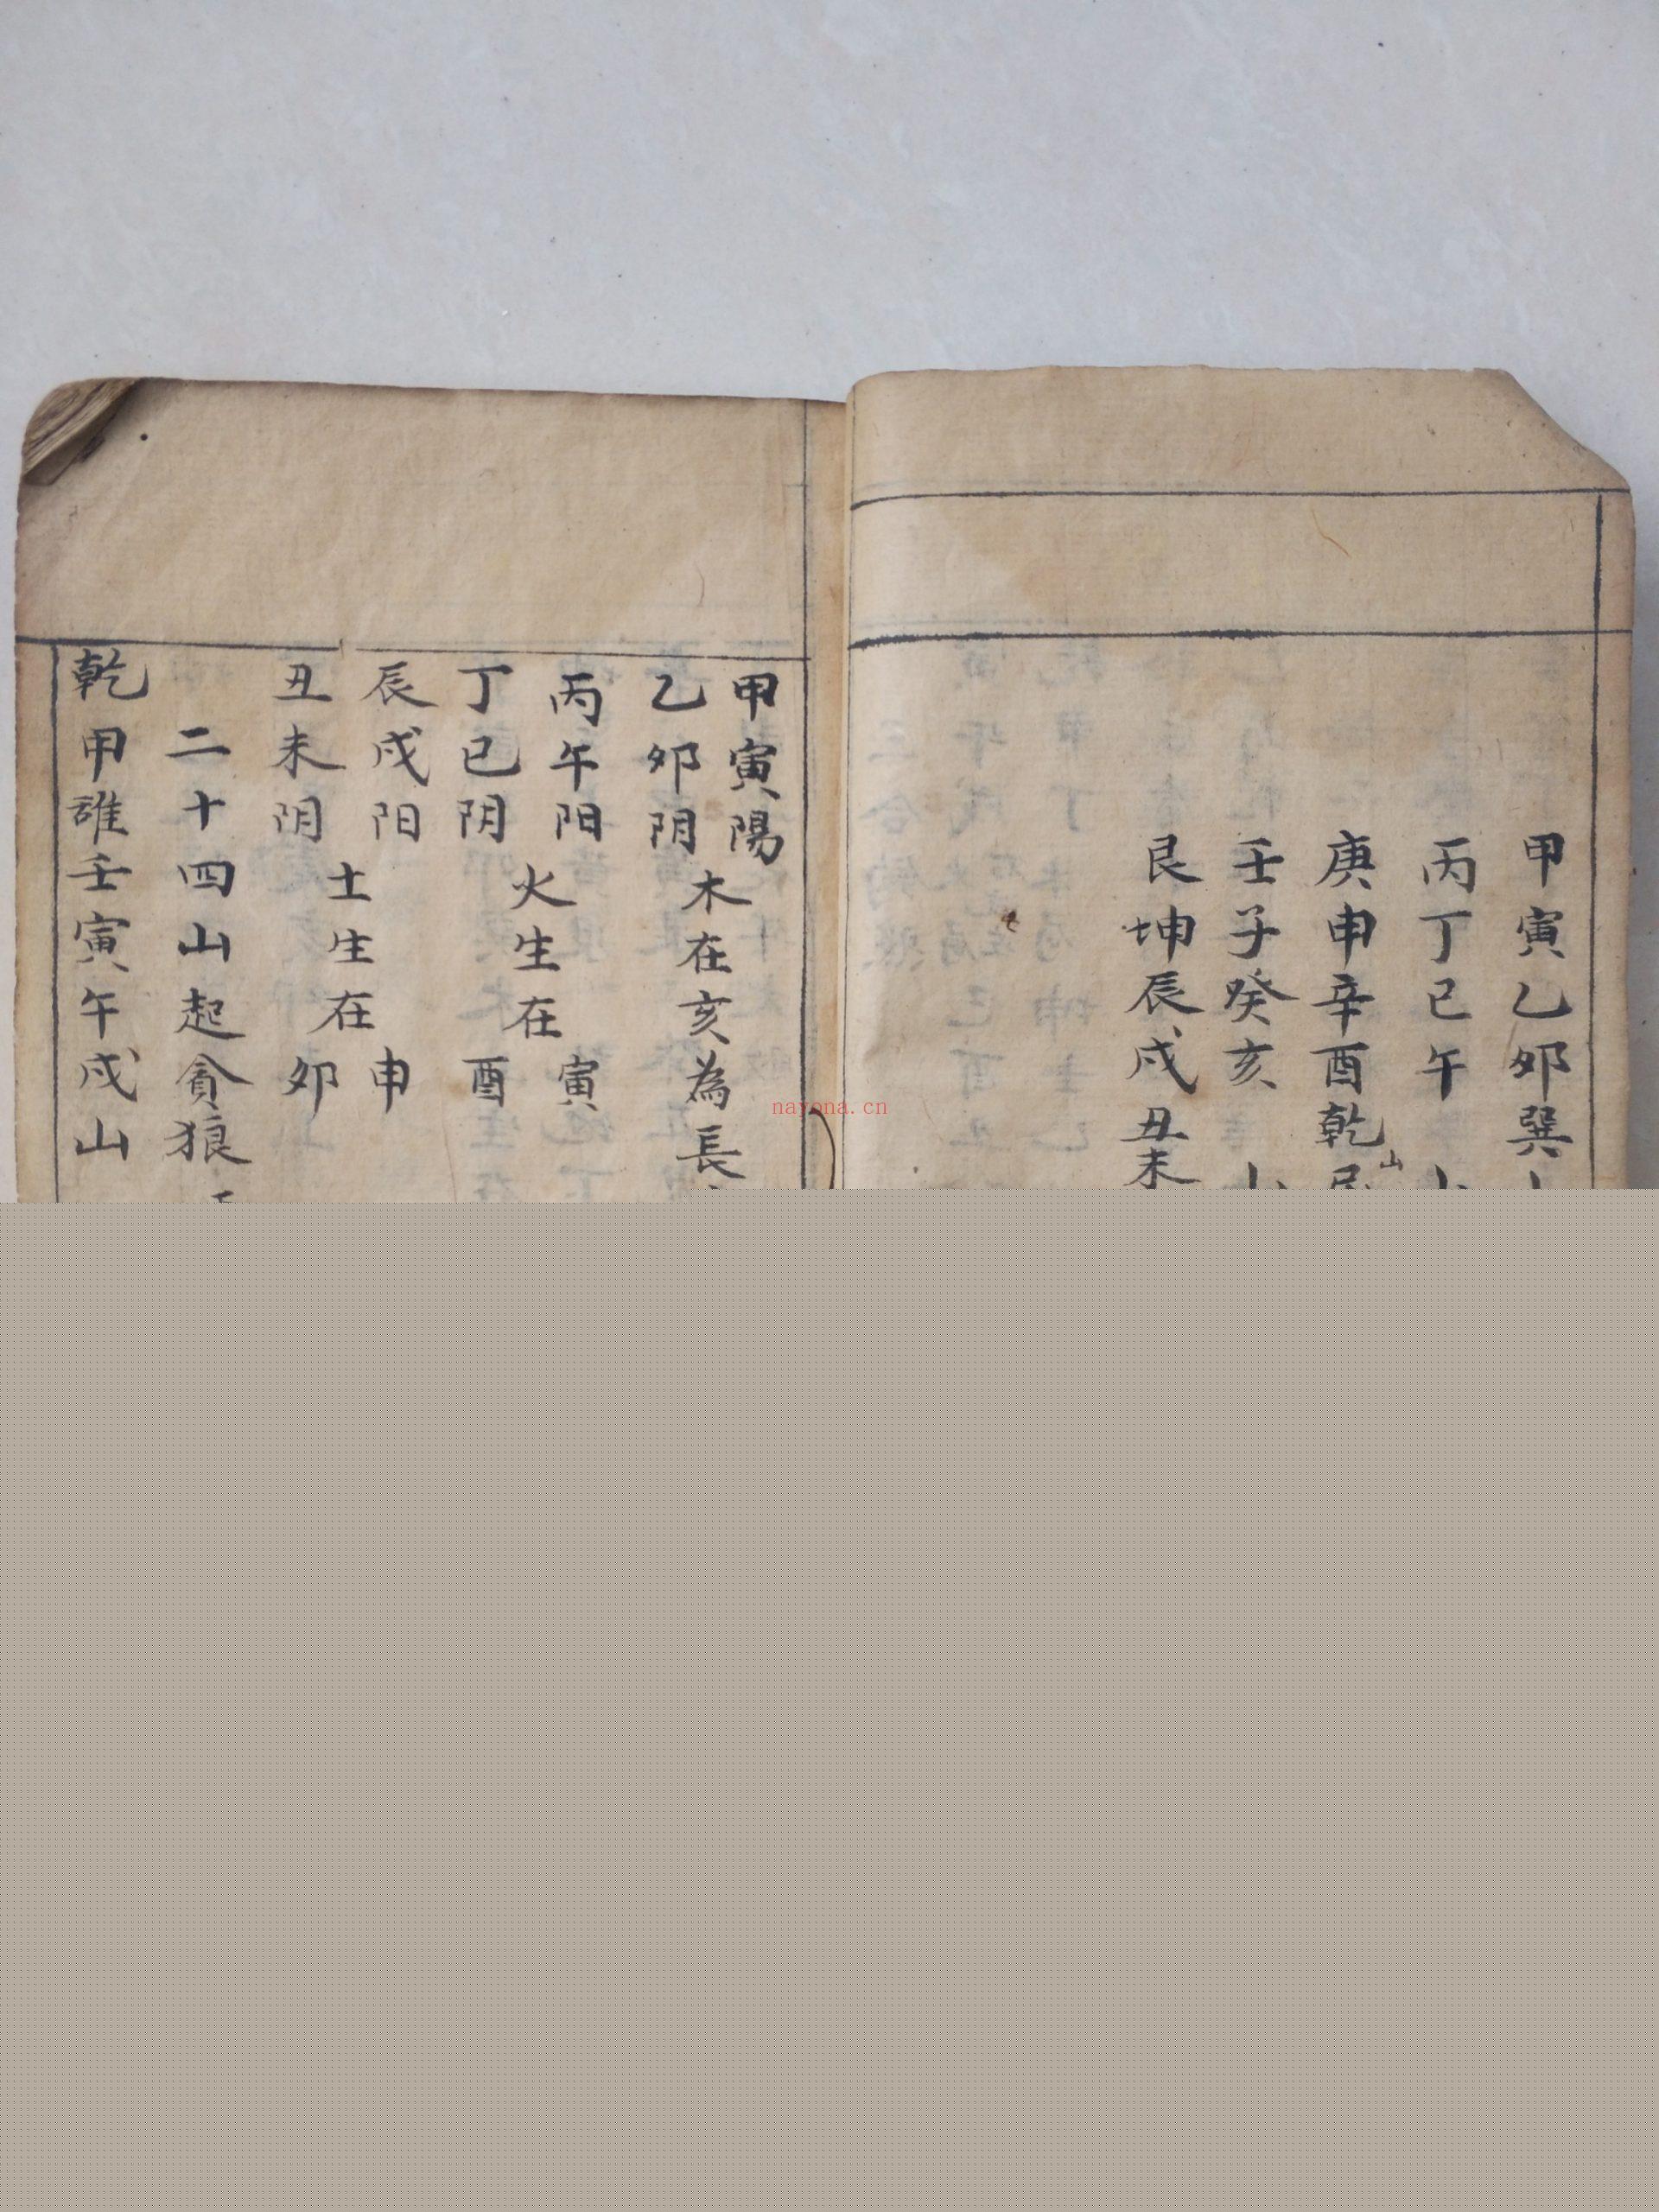 甲寅乙卯巽
丙丁巳午
庚申辛酉乾
山
壬子癸亥
艮坤辰戌丑未
甲寅陽
乙卯阴
木在亥為長
丙午阳
丁巳阴
火生在
寅
酉
辰戌阳
丑未阴
土生在
申
卯
二十四山起貪狼
乾甲誰壬寅午戌山
nayona.cn